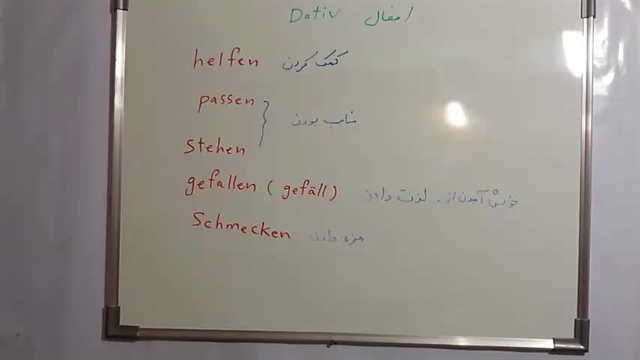 Dativ افعال
helfen کمک کردن
passen
مناسب بودن
stehen
gefallen (gefäll) خوش آمدن از - لذت دادن
Schmecken مزه دادن